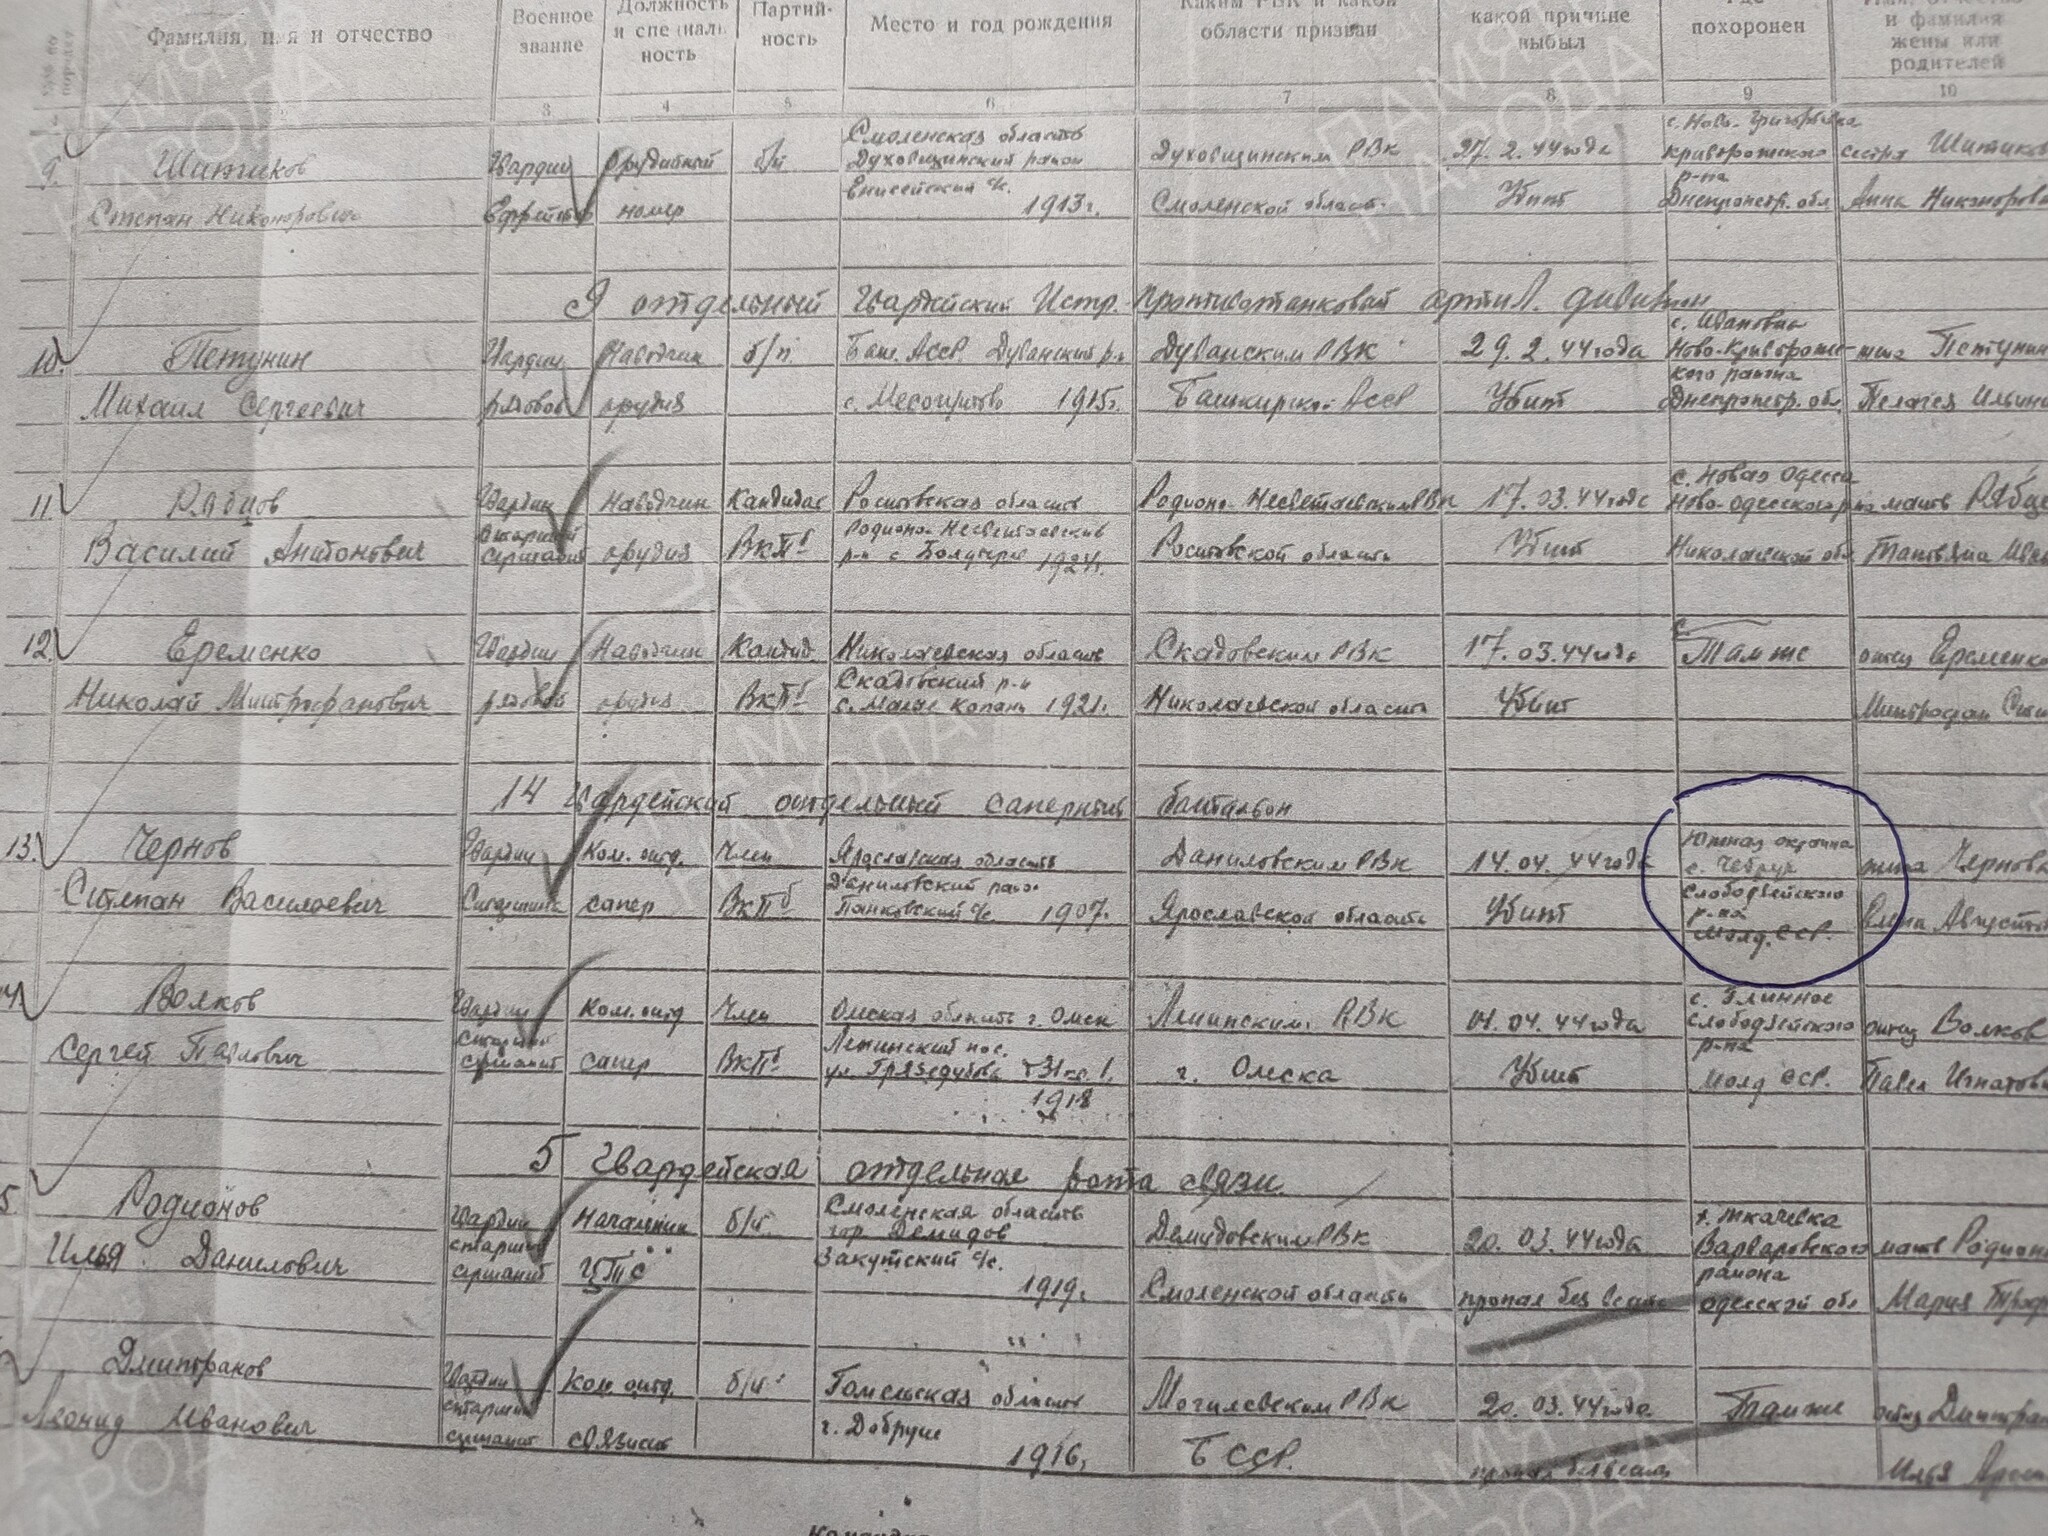 Фамилия, имя и отчество
Военное звание
Должность и специальность
Партийность
Место и год рождения
Каким РВК и какой области призван
какой причине выбыл
Где похоронен
Имя, отчество и фамилия жены или родителей
3 4 5 6 7 8 9 10
9. Шитиков Гвардии Орудийный б/п Смоленская область Духовщинский район Духовщинским РВК 27.2.44 года с. Ново-Григорьевка Криворожского сестра Шитиков
Степан Никонорович Ефрейтор номер 1913г. Смоленской област. Убит р-на Днепропетр. обл Анна Никоноров
9 отдельный Гвардейский Истр.-противотанковый артил. дивизион
10. Петунин Гвардии Наводчик б/п Баш. АССР. Дуванский р-н Дуванским РВК 29.2.44 года с. Ивановка Ново-Криворожс- Петунин
Михаил Сергеевич рядовой орудия 1915г. Башкирской АССР Убит кого района Днепропетр. обл.
11. Рябцов Гвардии Наводчик Кандидат Ростовская область Родионо-Несветаевским РВК 17.03.44 года с. Новая Одесса Ново-Одесского р-на мать
Василий Антонович старший сержант орудия ВКПб Родионо-Несветаевский р-н с 1924г. Ростовской область Убит Николаевской обл Татьяна
12. Еременко Гвардии Наводчик Кандид. Николаевская область Скадовским РВК 17.03.44 года Там же отец Еременко
Николай Митрофанович рядовой орудия ВКПб Скадовский р-н 1921г. Николаевской область Убит Митрофан
14 Гвардейский отдельный саперный батальон
13. Чернов Гвардии Ком. отд. Член Ярославская область Даниловским РВК 14.04.44 года Южная окраина с. Чебруч жена Чернова
Степан Василоевич сапер ВКПб Даниловский район Панковский с/с 1907г. Ярославской область Убит Слободзейского р-на Молд. ССР.
Волков Гвардии Ком. отд Член Омская область г. Омск Ленинским. РВК 04.44 года с. Глинное Слободзейского р-на отец Волков
Сергей Павлович старший сержант сапер ВКПб Ленинский пос. 1918 г. Омска Убит Молд ССР. Павел Игнатов
5 Гвардейская отдельная рота связи.
5. Родионов Гвардии Начальник б/п Смоленская область гор. Демидов Демидовским РВК 20.03.44 года х. Ткачевка Варваровского мать Родион
Илья Данилович старший сержант ЦТС Закутский с/с. 1919. Смоленской область пропал без вести района одесской обл Мария
Дмитраков Гвардии Ком. отд. б/п Гомельская область Могилевским РВК 20.03.44 года. Там же отец Дмитрак
Леонид Иванович старший сержант связист г. Добруш 1916, БССР. пропал без вести Илья
ПАМЯТЬ НАРОДА